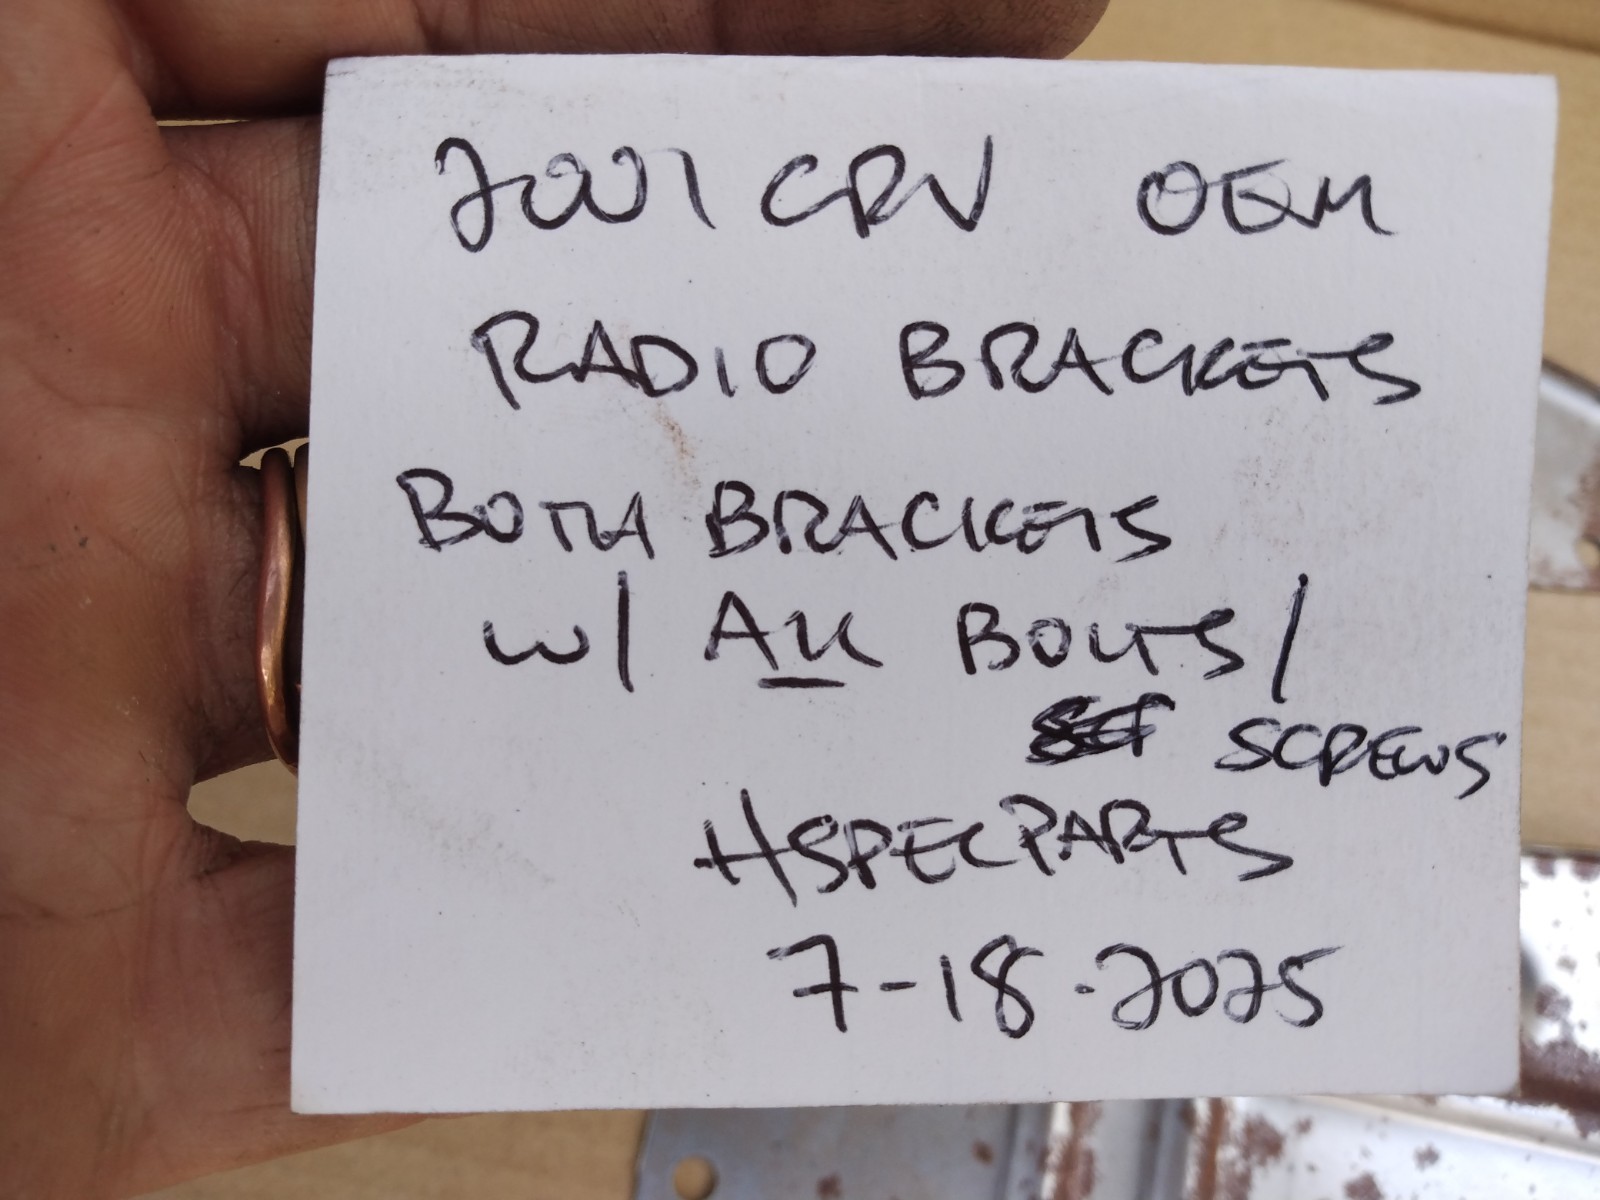 2001 CRV OEM
RADIO BRACKETS
BOTH BRACKETS
W/ ALL BOLTS/
SCREWS
HSPECPARTS
7-18-2025